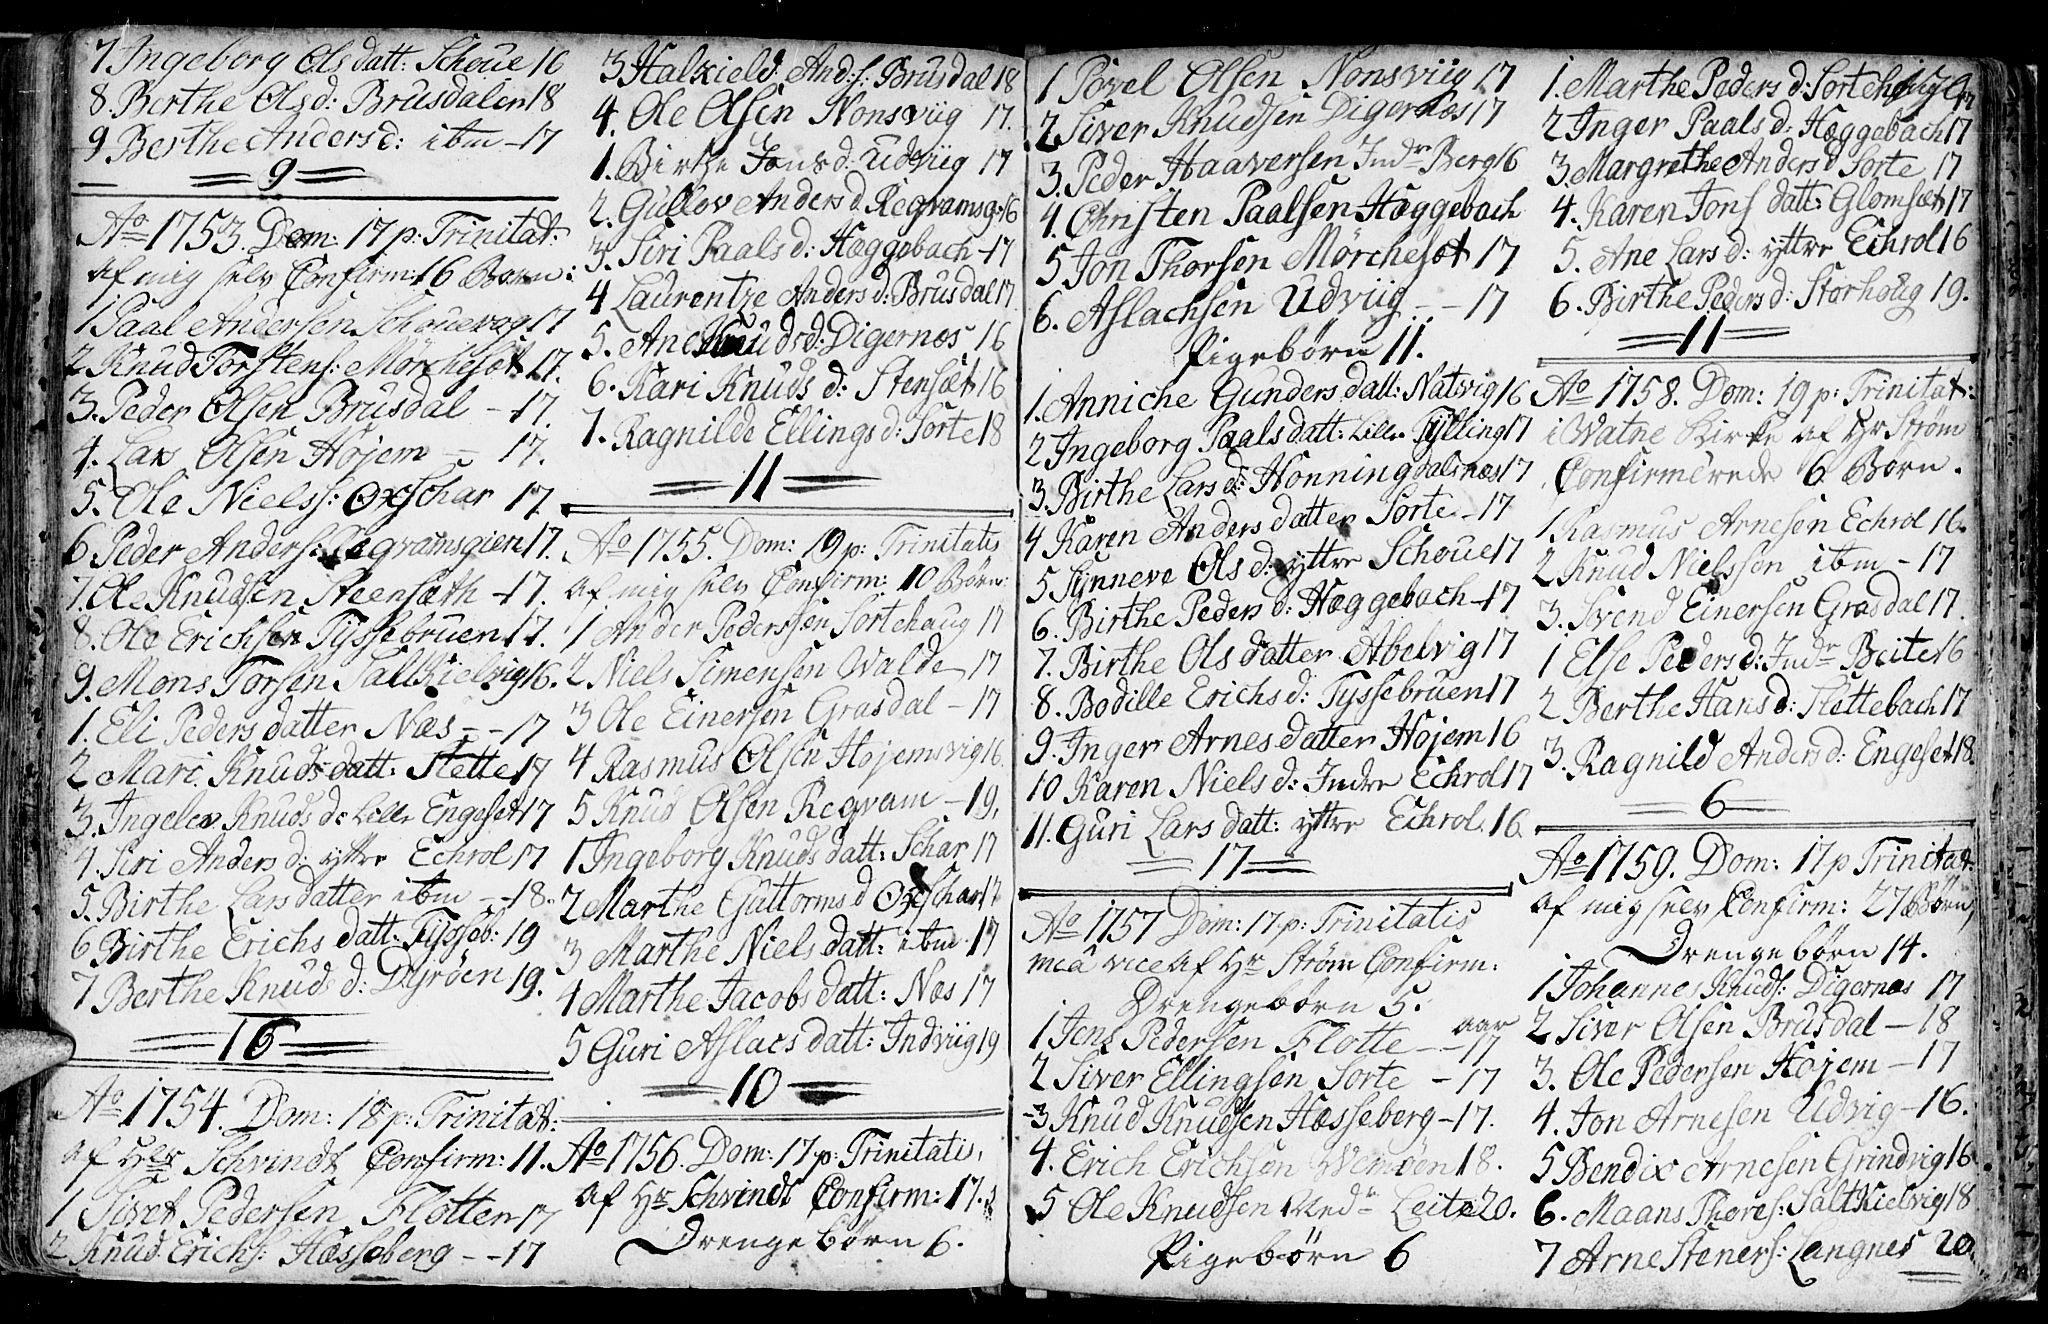 7 Ingeborg Olsdatt: Schoue 16
8. Berthe Olsd: Brusdalen 18
9 Berthe Andersd: ibm - 17
9
Ao 1753. Dom: 17 p: Trinitat:
af mig selv Confirm: 16 Børn:
1 Paal Andersen Schouevog 17
2 Knud Torstens: Mörchesæt 17.
3. Peder Olsen Brusdal - 17.
4. Lars Olsen Höjem - 17.
5. Ole Niels: Oxschar 17.
6 Peder Anders: Regvamsgien 17.
7. Ole Knudsen Steensæth - 17.
8. Ole Erichsen Tyssebruen 17.
9. Mons Torsen Saltkielvig 16.
1. Eli Pedersdatter Næs - - 17
2 Mari Knudsdatt: Slette 17
3. Ingelev Knudsd: Lille Engeset 17
4. Siri Andersd: yttre Echrol 17
5. Birthe Larsdatter ibm - 18.
6 Birthe Erichsdatt: Tysseb: 19
7 Berthe Knudsd: Dyröen 19.
16
Ao 1754. Dom: 18 p: Trinitat:
af Hr Schvindt Confirm: 11.
1 Sivert Pedersen Flotten 17
2 Knud Erichs: Hæsseberg - - 17
3 Halkield And:s: Brusdal 18
4. Ole Olsen Nonsviig 17.
1. Birthe Jonsd: Udviig 17
2. Gullov Andersd Regvamsg: 16
3. Siri Paalsd: Hæggebach - 17
4 Laurentze Andersd: Brusdal 17
5. Ane Knudsd: Digernæs 16
6. Kari Knudsd: Stensæt 16
7. Ragnilde Ellingsd: Sorte 18
11
Ao 1755. Dom: 19 p: Trinitatis
af mig selv Confirm: 10 Börn:
1 Ander Pederssen Sortehaug 17
2 Niels Simensen Walde 17
3 Ole Einersen Grasdal - 17
4 Rasmus Olsen Höjemsvig 16.
5 Knud Olsen Regvam - 19.
1 Ingeborg Knudsdatt: Schar 17
2 Marthe Guttormsd Oxschar 17
3 Marthe Nielsdatt: ibm 17
4 Marthe Jacobsdatt: Næs 17
5 Guri Aslacsdatt: Indviig 19
10
Ao 1756. Dom: 17 p: Trinitati,
af Hr Schvindt Confirm: 17.
Drengebörn 6.
1 Povel Olsen Nonsviig 17
2 Siver Knudsen Digernæs 17
3. Peder Haaversen Indr Berg 16
4. Christen Paalsen Hæggebach
5 Jon Thorsen Mörchesæt 17
6. Aslachsen Udviig - - 17
Pigebörn 11.
1. Anniche Gundersdatt: Natvig 16
2 Ingeborg Paalsdatt: Lille Tylling 17
3. Birthe Larsd: Honningdalsnæs 17
4 Karen Andersdatter Sorte - 17
5 Synneve Olsd: yttre Schoue 17
6. Birthe Pedersd: Hæggebach - 17
7. Birthe Olsdatter Abelvig 17
8. Bodille Erichsd: Tyssebruen 17
9. Inger Arnesdatter Höjem 16
10 Karen Nielsd: Indre Echrol 17
11. Guri Larsdatt: yttre Echrol. 16.
17
Ao 1757 Dom: 17. p: Trinitatis
mea vice af Hr Ström Confirm:
Drengebörn 5.
aar
1 Jens Pedersen Flotte - - 17
2 Siver Ellingsen Sorte - 17
3 Knud Knudsen Hæsseberg - 17.
4. Erich Erichsen 18.
5 Ole Knudsen Nedr Leite 20.
Pigebörn 6
1. Marthe Pedersd: Sortehoug 17
2 Inger Paalsd: Hæggebach 17
3. Margrethe Andersd Sorte 17
4. Karen Jonsdatt: Glomsæt 17
5. Ane Larsd: yttre Echrol 16
6. Birthe Pedersd: Storhoug 19.
11
Ao 1758. Dom: 19 p: Trinitat:
i Watne Kirke af Hr Ström
Confirmerede 6 Börn.
1 Rasmus Arnesen Echrol 16.
2 Knud Nielssen ibm - 17
3. Svend Einersen Grasdal 17.
1 Else Pedersd: Indr Beite 16
2 Berthe Hansd: Slettebach 17
3. Ragnild Andersd: Engeset 18.
6
Ao 1759. Dom: 17 p Trinitat:
af mig selv Confirm: 27 Börn,
Drengebörn 14.
1 Johannes Knuds: Digernæs 17
2 Siver Olsen Brusdal - 18
3. Ole Pedersen Höjem - 17
4. Jon Arnesen Udvig - 16.
5 Bendix Arnesen Grindvig 16
6. Maans Thores: Saltkielvig 18
7 Arne Steners: Langnes 20